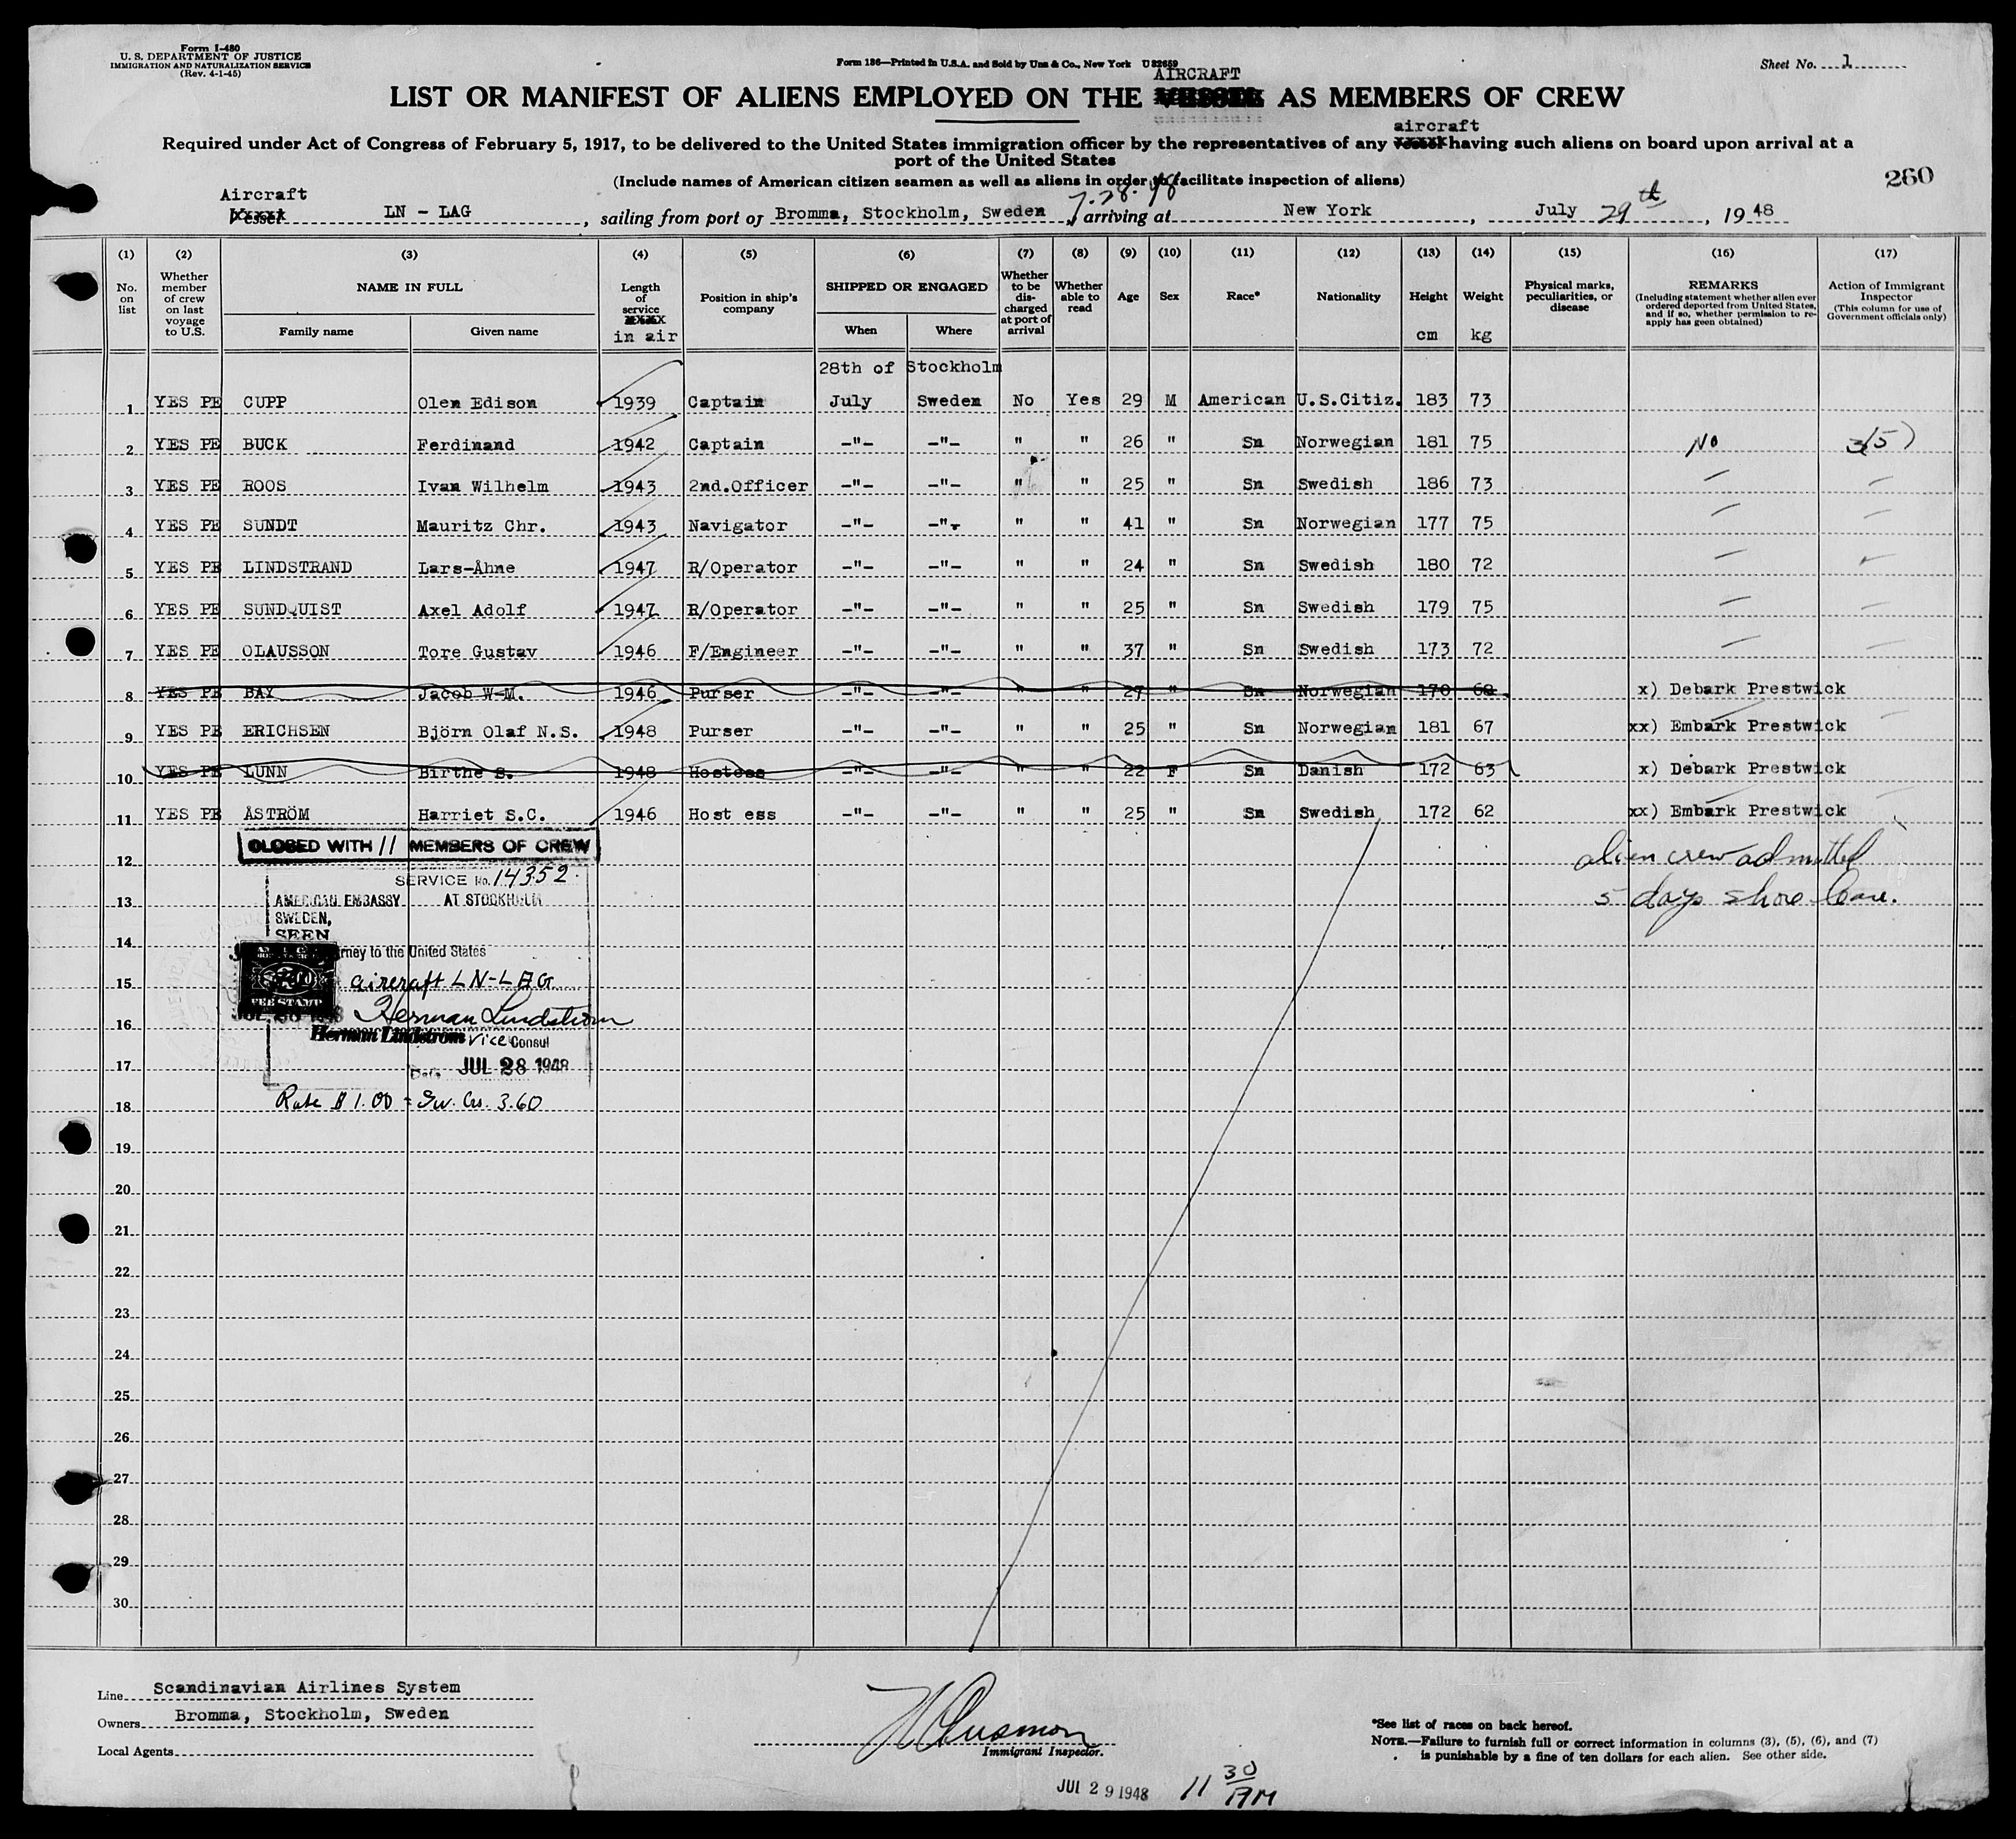 Form I-480
U. S. DEPARTMENT OF JUSTICE
IMMIGRATION AND NATURALIZATION SERVICE
(Rev. 4-1-45)
Form 186—Printed in U.S.A. and Sold by Unz & Co., New York U 82659
Sheet No. 1
AIRCRAFT
LIST OR MANIFEST OF ALIENS EMPLOYED ON THE VESSEL AS MEMBERS OF CREW
aircraft
Required under Act of Congress of February 5, 1917, to be delivered to the United States immigration officer by the representatives of any vessel having such aliens on board upon arrival at a
port of the United States
(Include names of American citizen seamen as well as aliens in order to facilitate inspection of aliens)
260
Aircraft 7.28.48
Vessel LN - LAG, sailing from port of Bromma, Stockholm, Sweden, arriving at New York, July 29th, 1948
(1) (2) (3) (4) (5) (6) (7) (8) (9) (10) (11) (12) (13) (14) (15) (16) (17)
No. on list
Whether member of crew on last voyage to U.S.
NAME IN FULL
Family name Given name
Length of service in air
Position in ship's company
SHIPPED OR ENGAGED
When Where
Whether to be discharged at port of arrival
Whether able to read
Age
Sex
Race*
Nationality
Height cm
Weight kg
Physical marks, peculiarities, or disease
REMARKS
(Including statement whether alien ever ordered deported from United States, and if so, whether permission to reapply has been obtained)
Action of Immigrant Inspector
(This column for use of Government officials only)
28th of Stockholm
1 YES PE CUPP Olen Edison 1939 Captain July Sweden No Yes 29 M American U.S.Citiz. 183 73
2 YES PE BUCK Ferdinand 1942 Captain -"- -"- " " 26 " Sn Norwegian 181 75 No 3(5)
3 YES PE ROOS Ivan Wilhelm 1943 2nd.Officer -"- -"- " " 25 " Sn Swedish 186 73
4 YES PE SUNDT Mauritz Chr. 1943 Navigator -"- -"- " " 41 " Sn Norwegian 177 75
5 YES PE LINDSTRAND Lars-Åhne 1947 R/Operator -"- -"- " " 24 " Sn Swedish 180 72
6 YES PE SUNDQUIST Axel Adolf 1947 R/Operator -"- -"- " " 25 " Sn Swedish 179 75
7 YES PE OLAUSSON Tore Gustav 1946 F/Engineer -"- -"- " " 37 " Sn Swedish 173 72
8 YES PE BAY Jacob W-M. 1946 Purser -"- -"- " " 27 " Sn Norwegian 170 68 x) Debark Prestwick
9 YES PE ERICHSEN Björn Olaf N.S. 1948 Purser -"- -"- " " 25 " Sn Norwegian 181 67 xx) Embark Prestwick
10 YES PE LUNN Birthe S. 1948 Hostess -"- -"- " " 22 F Sn Danish 172 63 x) Debark Prestwick
11 YES PE ÅSTRÖM Harriet S.C. 1946 Host ess -"- -"- " " 25 " Sn Swedish 172 62 xx) Embark Prestwick
CLOSED WITH 11 MEMBERS OF CREW
12 alien crew admitted
SERVICE No. 14352
13 AMERICAN EMBASSY AT STOCKHOLM 5 days shore leave.
SWEDEN,
SEEN
14 journey to the United States
15 aircraft LN-LAG
FEE STAMP
Herman Lindstrom
16
Herman Lindstrom Vice Consul
17 Date JUL 28 1948
18 Rate $1.00 = Sw. Crs. 3.60
19
20
21
22
23
24
25
26
27
28
29
30
Line Scandinavian Airlines System
Owners Bromma, Stockholm, Sweden
Local Agents
Immigrant Inspector.
*See list of races on back hereof.
NOTE.—Failure to furnish full or correct information in columns (3), (5), (6), and (7)
is punishable by a fine of ten dollars for each alien. See other side.
JUL 29 1948 11 30 AM